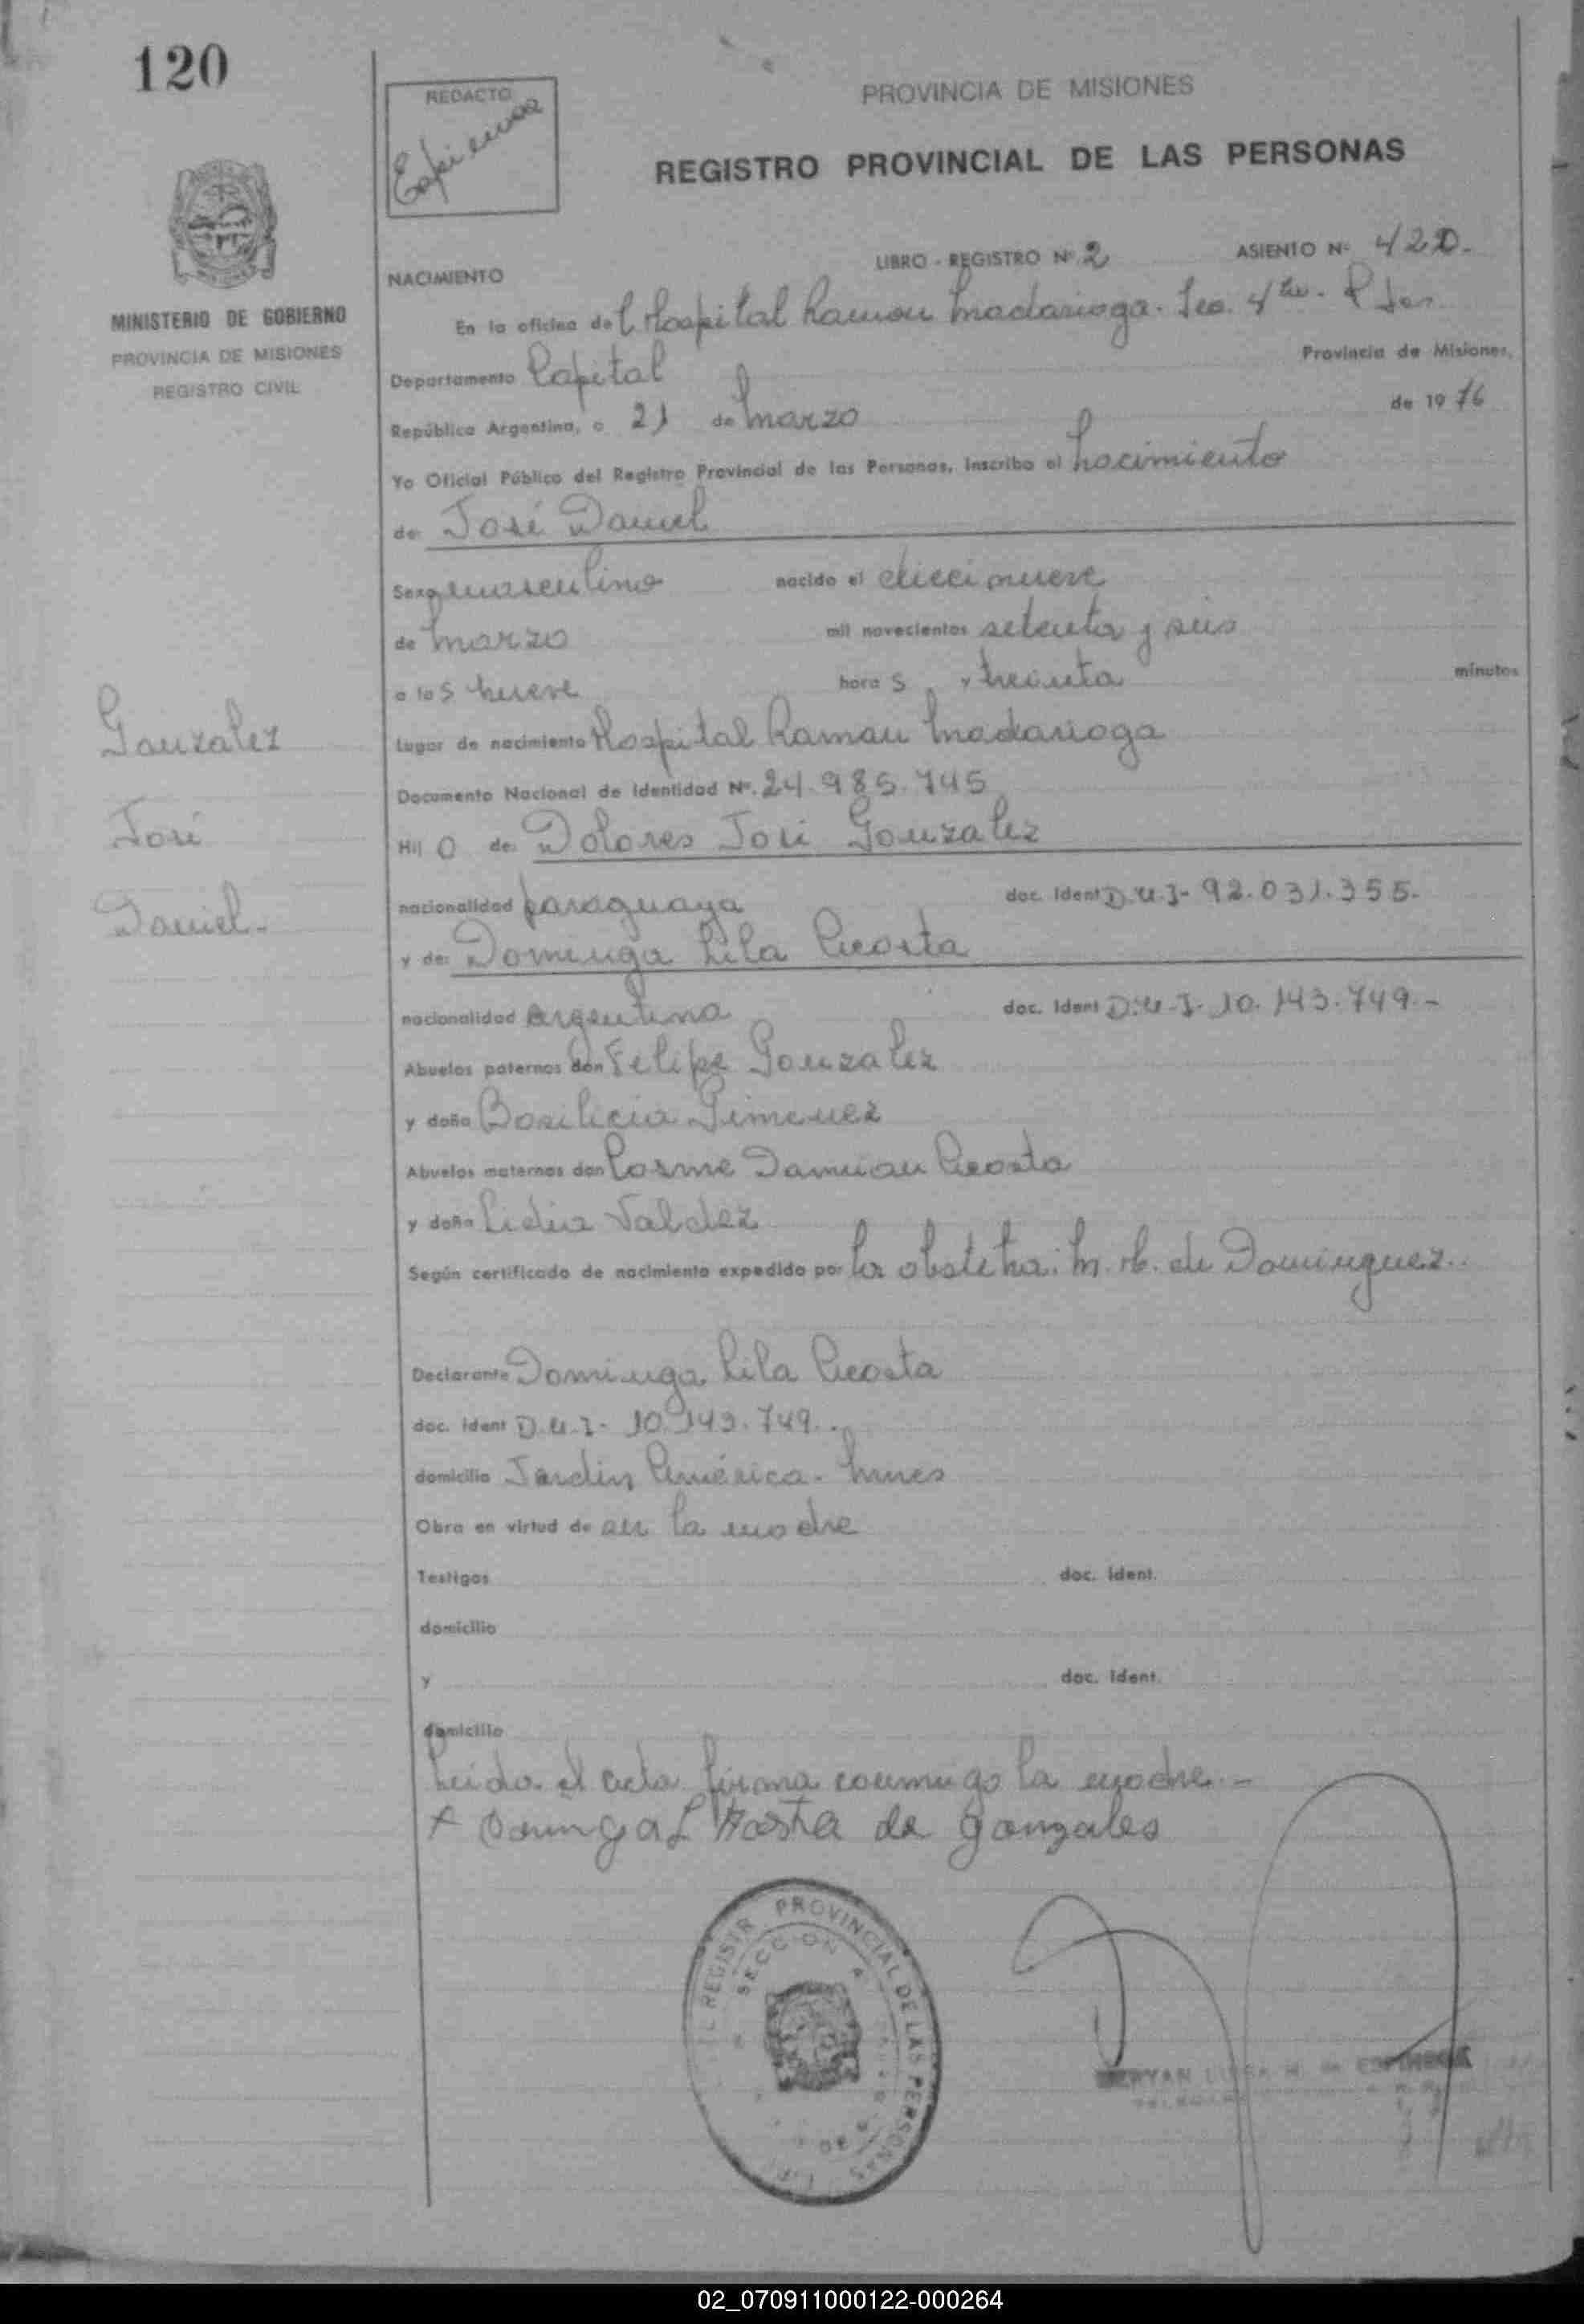 120
REDACTO
Espinoza
PROVINCIA DE MISIONES
REGISTRO PROVINCIAL DE LAS PERSONAS
MINISTERIO DE GOBIERNO
PROVINCIA DE MISIONES
REGISTRO CIVIL
LIBRO - REGISTRO Nº 2 ASIENTO Nº 420.-
NACIMIENTO
En la oficina del Hospital Ramon Madariaga. Sec. 4ta. Pdas
Departamento Capital Provincia de Misiones,
República Argentina, a 21 de Marzo de 1976
Yo Oficial Público del Registro Provincial de las Personas, inscribo el Nacimiento
de José Daniel
Sexo masculino nacido el diecinueve
de Marzo mil novecientos setenta y seis
a las nueve horas y treinta minutos
Gonzalez
Lugar de nacimiento Hospital Ramon Madariaga
Documento Nacional de Identidad Nº. 24.985.745
José
Hijo de: Dolores José Gonzalez
Daniel.-
nacionalidad paraguaya doc. Ident D.U.I- 92.031.355.-
y de: Dominga Lila Acosta
nacionalidad argentina doc. Ident D.U.I- 10.143.749.-
Abuelos paternos don Felipe Gonzalez
y doña Basilicia Gimenez
Abuelos maternos don Cosme Damian Acosta
y doña Lidia Valdez
Según certificado de nacimiento expedido por la obstetra: M. H. de Dominguez.
Declarante Dominga Lila Acosta
doc. ident D.U.I- 10.143.749..
domicilio Jardin América. Mnes
Obra en virtud de ser la madre
Testigos doc. Ident.
domicilio
y doc. Ident.
domicilio
Leida el acta firma conmigo la madre.-
Dominga L Acosta de gonzales
REGISTR PROVINCIAL DE LAS PERSONAS
SECCION 4
LUISA M. de ESPINOZA
02_070911000122-000264